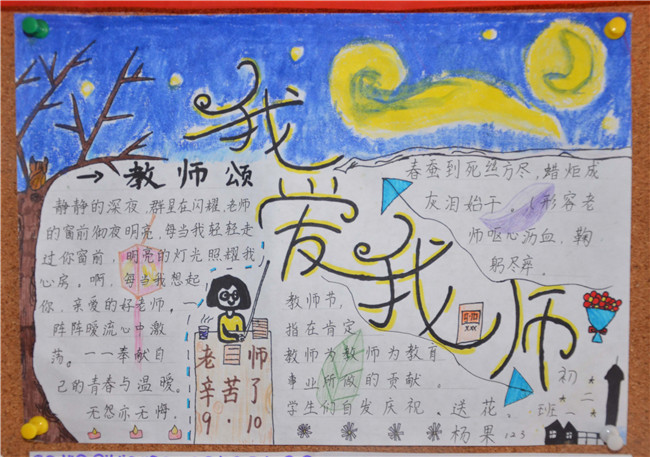 我爱我师
→教师颂
静静的深夜,群星在闪耀,老师
的窗前彻夜明亮,每当我轻轻走
过你窗前,明亮的灯光照耀我
心房。啊,每当我想起
你,亲爱的好老师。一
阵阵暖流心中激
荡。一一奉献自
己的青春与温暖。
无怨亦无悔.
老师
辛苦了
9·10
春蚕到死丝方尽,蜡炬成
灰泪始干。(形容老
师呕心沥血,鞠
躬尽瘁.
教师节,
指在肯定
教师为教师为教育
事业所做的贡献。
学生们自发庆祝、送花。
初二班
杨果 123